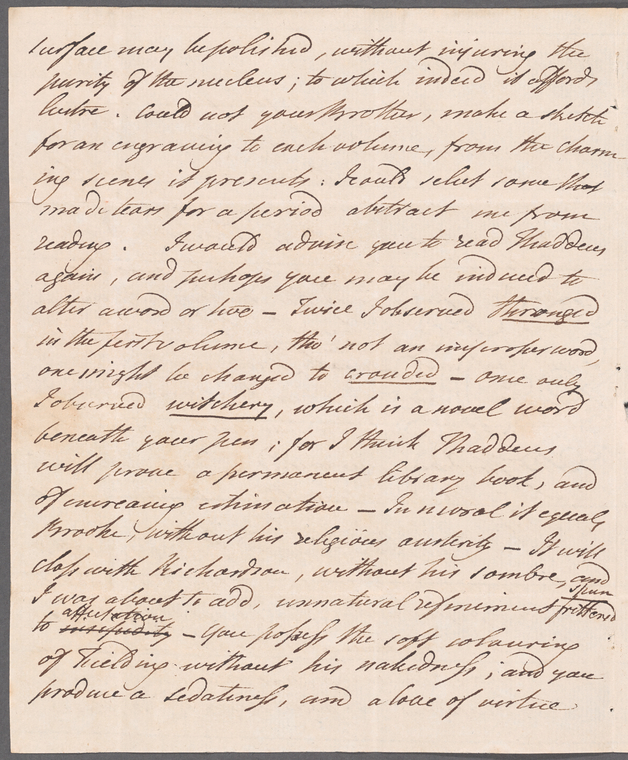 surface may be polished, without injuring the
purity of the nucleus; to which indeed it affords
lustre. Could not your Brother, make a sketch
for an engraving to each volume, from the charm-
ing scenes it presents: I could select some that
made tears for a period abstract me from
reading. I would advise you to read Thaddeus
again, and perhaps you may be induced to
alter a word or two – Twice I observed thronged
in the first volume, tho' not an improper word,
one might be changed to crouded – one only
I observed witchery, which is a novel word
beneath your pen; for I think Thaddeus
will prove a permanent library book, and
of increasing estimation – In moral it equals
Brooke, without his religious austerity – It will
class with Richardson, without his sombre, and
I was about to add, unnatural refinement spun frittered
to insipidity affectation – you possess the soft colouring
of Fielding without his nakedness; and you
produce a sedateness, and a love of virtue